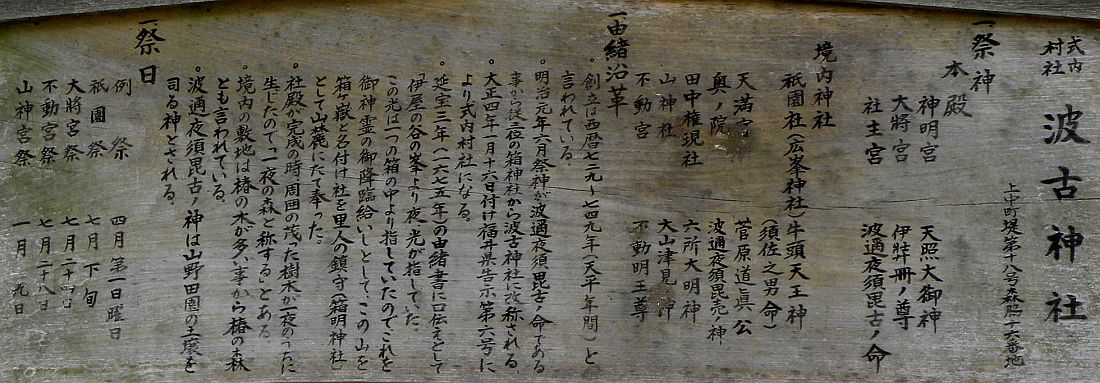 式内
村社
波古神社
上中町堤第十八号森脇十六番地
一祭神
本殿
神明宮 天照大御神
大將宮 伊弉冊ノ尊
社主宮 波通夜須毘古ノ命
境内神社
祇園社(広峯神社)牛頭天王神
(須佐之男命)
天満宮 菅原道真公
奥ノ院 波通夜須毘売ノ神
田中権現社 六所大明神
山神社 大山津見ノ神
不動宮 不動明王尊
一由緒沿革
。創立は西暦七二九〜七四九年(天平年間)と
言われている。
。明治元年六月祭神が波通夜須毘古ノ命である
事から従二位の箱神社から波古神社に改称される
。大正四年一月十六日付け福井県告示第六号に
より式内村社になる。
。延宝三年(一六七五年)の由緒書に口伝えとして
伊屋の谷の峯より夜、光が指していた。
この光は一つの箱の中より指していたのでこれを
御神霊の御降臨給いしとして、この山を
箱ヶ嶽と名付け社を里人の鎮守(箱明神社)
として山麓にたて奉った。
。社殿が完成の時周囲の茂った樹木が一夜のうちに
生じたので、一夜の森と称する」とある
。境内の敷地は椿の木が多い事から椿の森
とも言われている。
。波通夜須毘古ノ神は山野田園の土壌を
司る神とされる。
一祭日
例祭 四月第一日曜日
祇園祭 七月下旬
大將宮祭 七月二十四日
不動宮祭 七月二十八日
山神宮祭 一月 九日